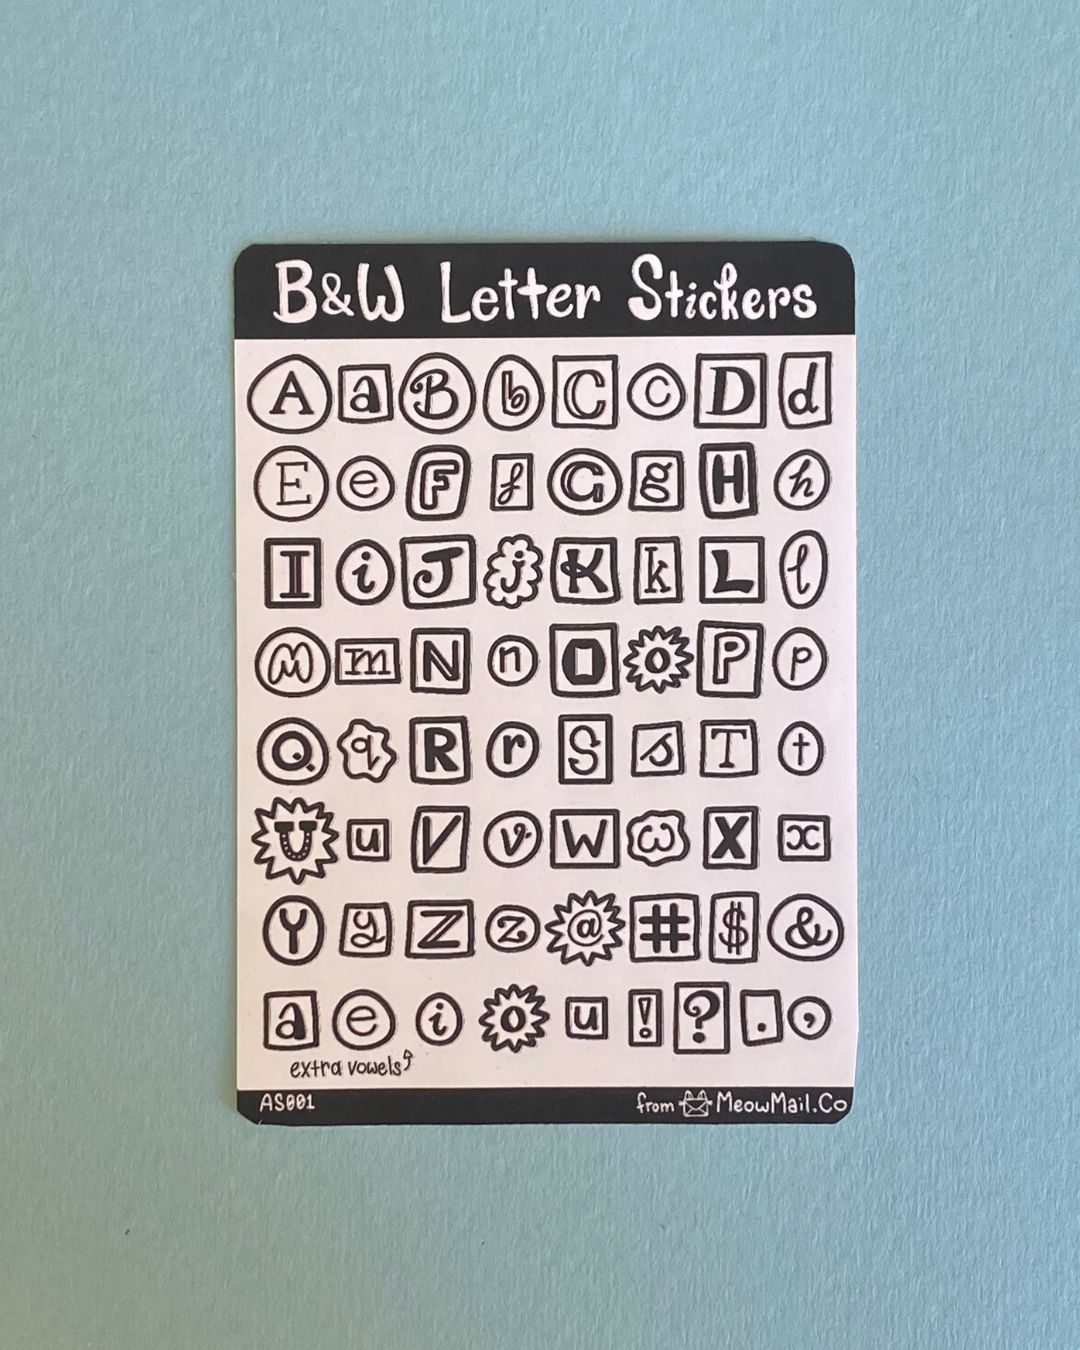 B&W Letter Stickers
A a B b C c D d
E e F f G g H h
I i J j K k L l
M m N n O o P p
Q q R r S s T t
U u V v W w X x
Y y Z z @ # $ &
a e i o u ! ? . ,
extra vowels
AS001
from MeowMail.Co